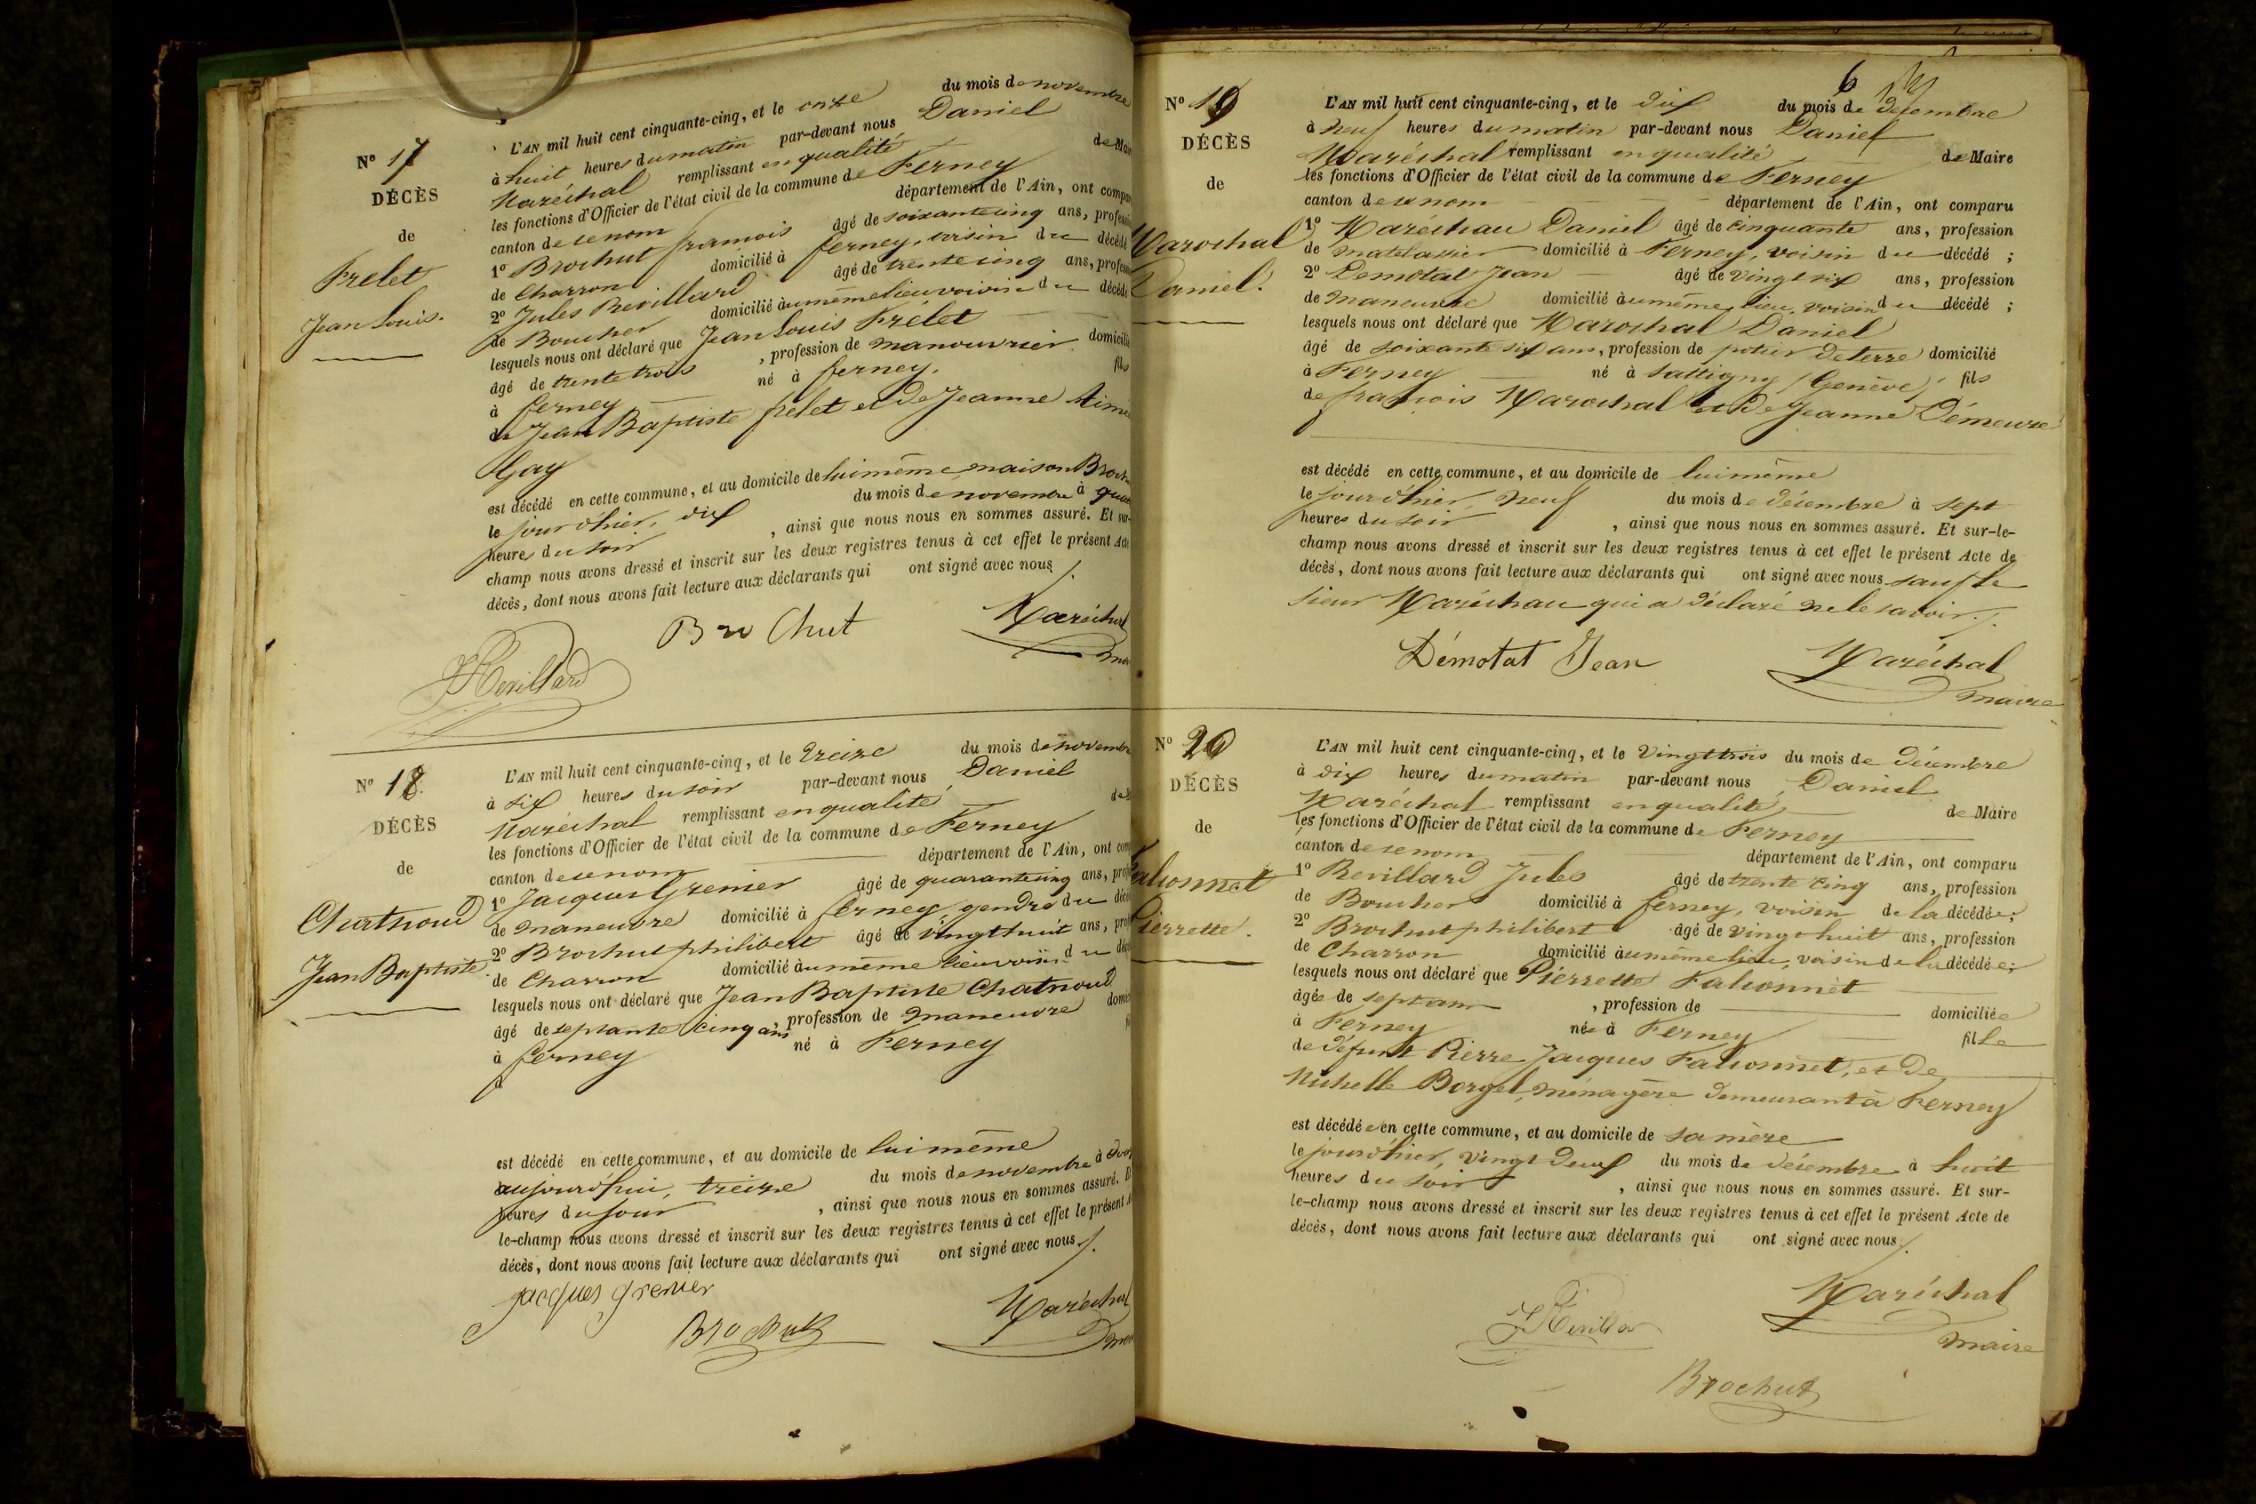 Nº 17
DÉCÈS
de
Frelet
Jean Louis.
L'AN mil huit cent cinquante-cinq, et le onze du mois de novembre
à huit heures du matin par-devant nous Daniel
Maréchal remplissant en qualité de Mai
les fonctions d'Officier de l'état civil de la commune de Ferney
canton de ce nom département de l'Ain, ont compa
1º Brochut francois âgé de soixante cinq ans, profession
de Charron domicilié à ferney, voisin du décédé
2º Jules Revillard âgé de trente cinq ans, profess
de Boucher domicilié au même lieu voisin du décédé
lesquels nous ont déclaré que Jean Louis Frélet
âgé de trente trois , profession de manouvrier domicilié
à ferney né à ferney. fils
de Jean Baptiste frelet et de Jeanne Aimé
Gay
est décédé en cette commune, et au domicile de lui même maison Broch
le jour d'hier, dix du mois de novembre à qua
heures du soir , ainsi que nous nous en sommes assuré. Et sur-
champ nous avons dressé et inscrit sur les deux registres tenus à cet effet le présent Acte
décès, dont nous avons fait lecture aux déclarants qui ont signé avec nous
Brochut Maréchal
JRevillard
Nº 18.
DÉCÈS
de
Chatnoud
Jean Baptiste.
L'AN mil huit cent cinquante-cinq, et le treize du mois de novembr
à six heures du soir par-devant nous Daniel
Maréchal remplissant en qualité de
les fonctions d'Officier de l'état civil de la commune de Ferney
canton de ce nom département de l'Ain, ont com
1º Jacques Grenier âgé de quarante cinq ans, prof
de maneuvre domicilié à ferney gendre du décé
2º Brochut philibert âgé de vingt huit ans, prof
de Charron domicilié au même lieu voisin du déc
lesquels nous ont déclaré que Jean Baptiste Chatnoud
âgé de septante cinq ans , profession de maneuvre domic
à ferney né à Ferney
est décédé en cette commune, et au domicile de lui même
aujourd'hui, treize du mois de novembre à
heures du jour , ainsi que nous nous en sommes assuré. E
le-champ nous avons dressé et inscrit sur les deux registres tenus à cet effet le présent A
décès, dont nous avons fait lecture aux déclarants qui ont signé avec nous
Jacques grenier
Brochut Maréchal
6
Nº 19
DÉCÈS
de
Marochal
Daniel.
L'AN mil huit cent cinquante-cinq, et le dix du mois de décembre
à neuf heures du matin par-devant nous Daniel
Maréchal remplissant en qualité de Maire
les fonctions d'Officier de l'état civil de la commune de Ferney
canton de ce nom département de l'Ain, ont comparu
1º Maréchau Daniel âgé de cinquante ans, profession
de matelassier domicilié à Ferney, voisin du décédé ;
2º Demotat Jean âgé de vingt six ans, profession
de maneuvre domicilié au même lieu, voisin du décédé ;
lesquels nous ont déclaré que Marochal Daniel
âgé de soixante six ans, profession de potier de terre domicilié
à Ferney né à Sattigny (Genève) fils
de francois Marochal et de Jeanne Démeure
est décédé en cette commune, et au domicile de lui même
le jour d'hier, neuf du mois de décembre à sept
heures du soir , ainsi que nous nous en sommes assuré. Et sur-le-
champ nous avons dressé et inscrit sur les deux registres tenus à cet effet le présent Acte de
décès, dont nous avons fait lecture aux déclarants qui ont signé avec nous sauf le
sieur Maréchau qui a déclaré ne le savoir.
Démotat Jean Maréchal
maire
Nº 20
DÉCÈS
de
Falionnet
Pierrette.
L'AN mil huit cent cinquante-cinq, et le vingt trois du mois de décembre
à dix heures du matin par-devant nous Daniel
Maréchal remplissant en qualité de Maire
les fonctions d'Officier de l'état civil de la commune de Ferney
canton de ce nom département de l'Ain, ont comparu
1º Revillard Jules âgé de trente cinq ans, profession
de Boucher domicilié à ferney, voisin de la décédée ;
2º Brochut philibert âgé de vingt huit ans, profession
de Charron domicilié au même lieu, voisin de la décédée ;
lesquels nous ont déclaré que Pierrette Falionnet
âgée de sept ans , profession de domiciliée
à Ferney née à Ferney fille
de défunt Pierre Jacques Falionnet, et de
Michelle Borgel, ménagère demeurant à Ferney
est décédée en cette commune, et au domicile de sa mère
le jour d'hier, vingt deux du mois de décembre à huit
heures du soir , ainsi que nous nous en sommes assuré. Et sur-
le-champ nous avons dressé et inscrit sur les deux registres tenus à cet effet le présent Acte de
décès, dont nous avons fait lecture aux déclarants qui ont signé avec nous.
JRevillar Maréchal
maire
Brochut